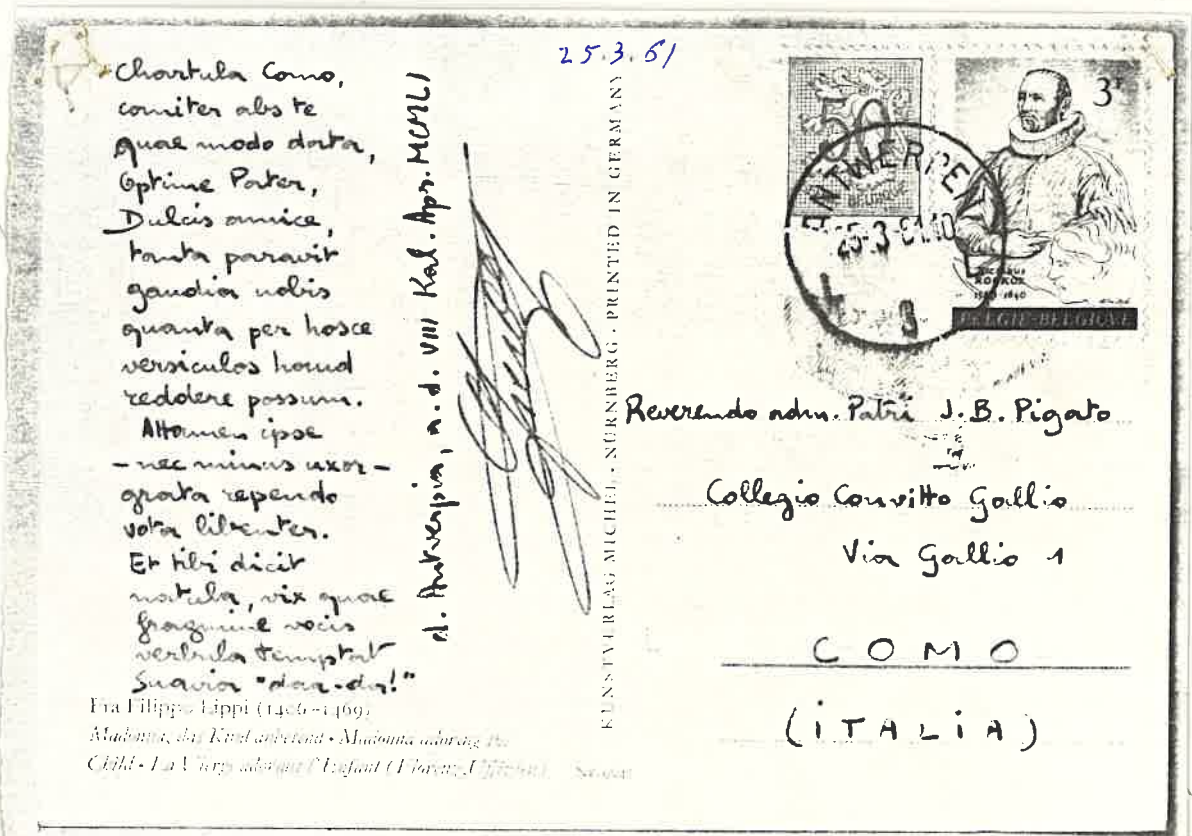 25.3.61
Chartula Como,
comiter abs te
quae modo data,
Optime Pater,
Dulcis amice,
tanta paravit
gaudia nobis
quanta per hosce
versiculos haud
reddere possum.
Attamen ipse
- nec minus uxor -
grata rependo
vota libenter.
Et tibi dicit
natula, vix quae
fragmine vocis
verbula temptat
Suavia "da-da!"
d. Antverpia, a.d. VIII Kal. Apr. MCMLI
Fra Filippo Lippi (1406-1469)
Madonna, das Kind anbetend • Madonna adoring the
Child • La Vierge adorant l'Enfant (Florenz, Uffizien)
KUNSTVERLAG MICHEL · NÜRNBERG · PRINTED IN GERMANY
50
3F
ANTWERPEN
25-3-61.10
NICOLAUS
ROCKOX
1560-1640
BELGIE-BELGIQUE
Reverendo adm. Patri J.B. Pigato
Collegio Convitto Gallio
Via Gallio 1
COMO
(iTALiA)